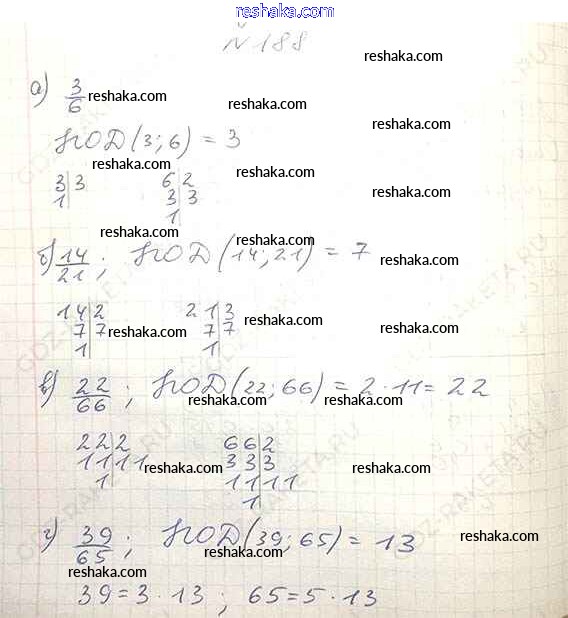 reshaka.com
№ 188
reshaka.com
а) 3/6 reshaka.com
reshaka.com
reshaka.com
НОД(3;6) = 3
reshaka.com
reshaka.com
3|3 6|2
1| 3|3
1
reshaka.com
reshaka.com
reshaka.com
б) 14/21; НОД(14;21) = 7
reshaka.com
14|2 21|3
7|7 7|7
1| 1|
reshaka.com
reshaka.com
reshaka.com
в) 22/66; НОД(22;66) = 2·11 = 22
reshaka.com
reshaka.com
22|2 66|2
11|11 33|3
1 11|11
1
reshaka.com
reshaka.com
reshaka.com
г) 39/65; НОД(39;65) = 13
reshaka.com
reshaka.com
reshaka.com
39 = 3·13; 65 = 5·13
reshaka.com
GDZ-RAKETA.RU